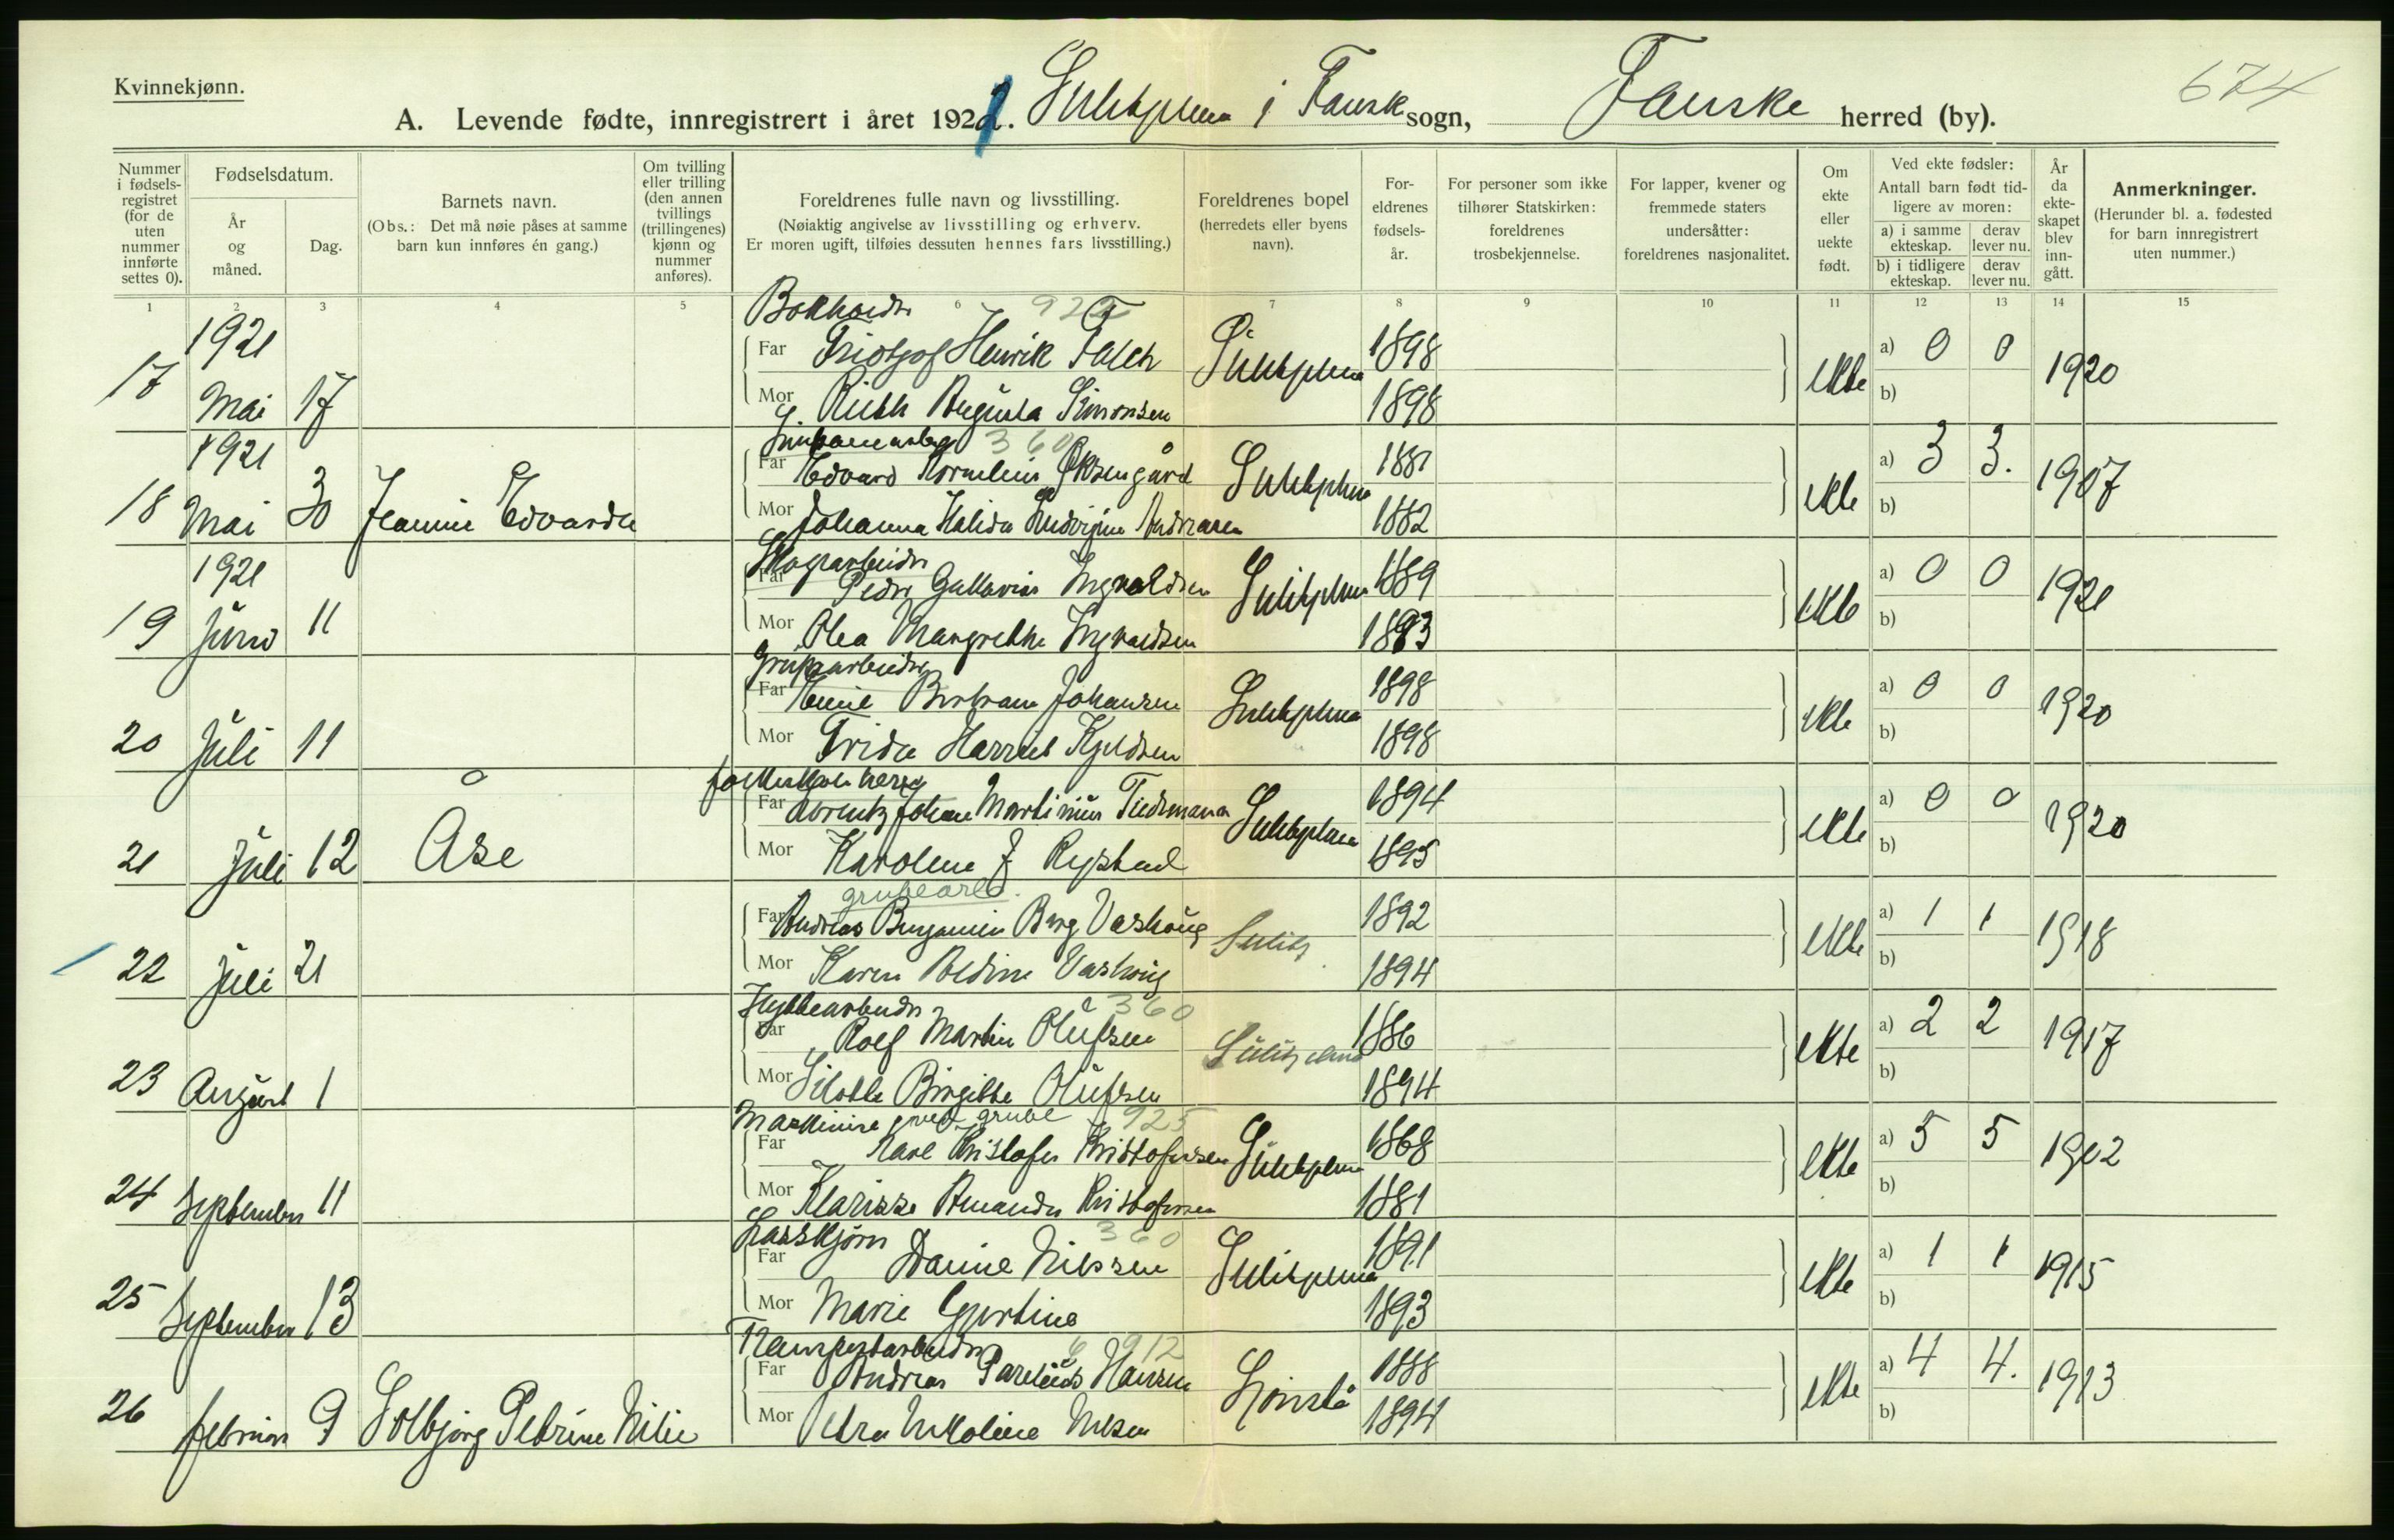 Kvinnekjønn.
674
A. Levende fødte, innregistrert i året 1921. Sulitjelma i Fauske sogn, Fauske herred (by).
Nummer i fødsels-registret (for de uten nummer innførte settes 0).
Fødselsdatum.
År og måned.
Dag.
Barnets navn.
(Obs.: Det må nøie påses at samme barn kun innføres én gang.)
Om tvilling eller trilling (den annen tvillings (trillingenes) kjønn og nummer anføres).
Foreldrenes fulle navn og livsstilling.
(Nøiaktig angivelse av livsstilling og erhverv.
Er moren ugift, tilføies dessuten hennes fars livsstilling.)
Foreldrenes bopel (herredets eller byens navn).
For-eldrenes fødsels-år.
For personer som ikke tilhører Statskirken: foreldrenes trosbekjennelse.
For lapper, kvener og fremmede staters undersåtter: foreldrenes nasjonalitet.
Om ekte eller uekte født.
Ved ekte fødsler:
Antall barn født tid-ligere av moren:
a) i samme ekteskap.
derav lever nu.
b) i tidligere ekteskap.
derav lever nu.
År da ekte-skapet blev inn-gått.
Anmerkninger.
(Herunder bl. a. fødested for barn innregistrert uten nummer.)
1 2 3 4 5 6 7 8 9 10 11 12 13 14 15
Bokholder 922
1921
Far Fridtjof Henrik Falch Sulitjelma 1898 a) 0 0
17 Mai 17 ekte 1920
Mor Ruth Augusta Simonsen 1898 b)
360
1921
Far Edvard Kornelius Øksengård Sulitjelma 1881 a) 3 3.
18 Mai 30 Jeannie Edvarda ekte 1907
Mor Johanna Halida Ludvigine Andreasen 1882 b)
Skogarbeider
1921
Far Peder Gustavius Ingvaldsen Sulitjelma 1889 a) 0 0
19 Juno 11 ekte 1921
Mor Olea Margrethe Ingvaldsen 1893 b)
Grubearbeider
Far Emil Bertram Johansen Sulitjelma 1898 a) 0 0
20 Juli 11 ekte 1920
Mor Frida Harriet Kjeldsen 1898 b)
Far Lorentz Johan Martinius Tiedemann Sulitjelma 1894 a) 0 0
21 Juli 12 Åse ekte 1920
Mor Karoline J Rystad 1895 b)
grubearb.
Far Andreas Benjamin Berg Vashaug Sulitj. 1892 a) 1 1
22 Juli 21 ekte 1918
Mor Karen Vashaug 1894 b)
Hyttearbeider 360
Far Rolf Martin Olufsen Sulitjelma 1886 a) 2 2
23 August 1 ekte 1917
Mor Birgitte Olufsen 1894 b)
Maskinist ved grube 925
Far Karl Kristofer Kristofersen Sulitjelma 1868 a) 5 5
24 September 11 ekte 1902
Mor Klarisse Amanda Kristofersen 1881 b)
Lasskjører 360
Far Daniel Nilssen Sulitjelma 1891 a) 1 1
25 September 13 ekte 1915
Mor Marie Gjertine 1893 b)
Transportarbeider 912
Far Andreas Parelius Hansen 1888 a) 4 4.
26 februar 9 Solbjørg Petrine Nilie ekte 1913
Mor Petra Nikoline Nilsen 1894 b)